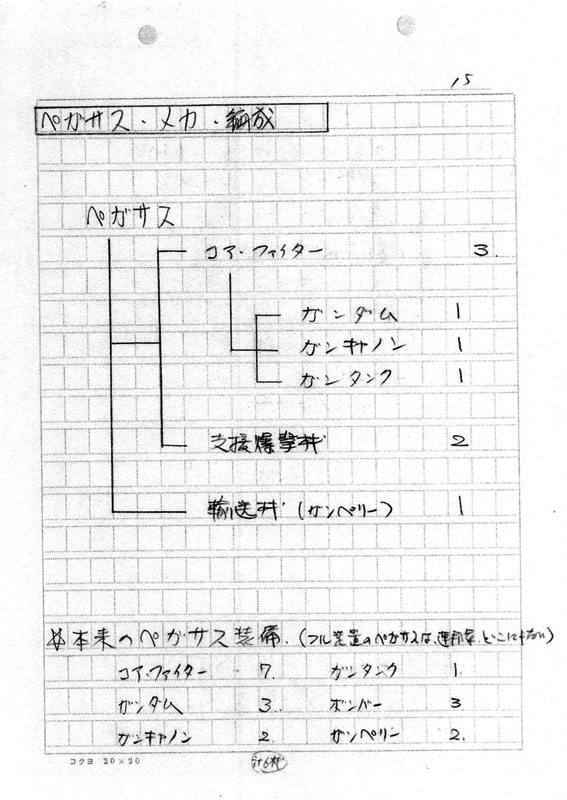 15
ペガサス・メカ・編成
ペガサス
コア・ファイター 3.
ガンダム 1
ガンキャノン 1
ガンタンク 1
支援爆撃機 2
輸送機(ガンペリー) 1
本来のペガサス装備.(フル装置のペガサスは、運用等、どこにもない)
コア・ファイター 7. ガンタンク 1.
ガンダム 3. ボンバー 3
ガンキャノン 2. ガンペリン 2.
コクヨ 20×20
計6機